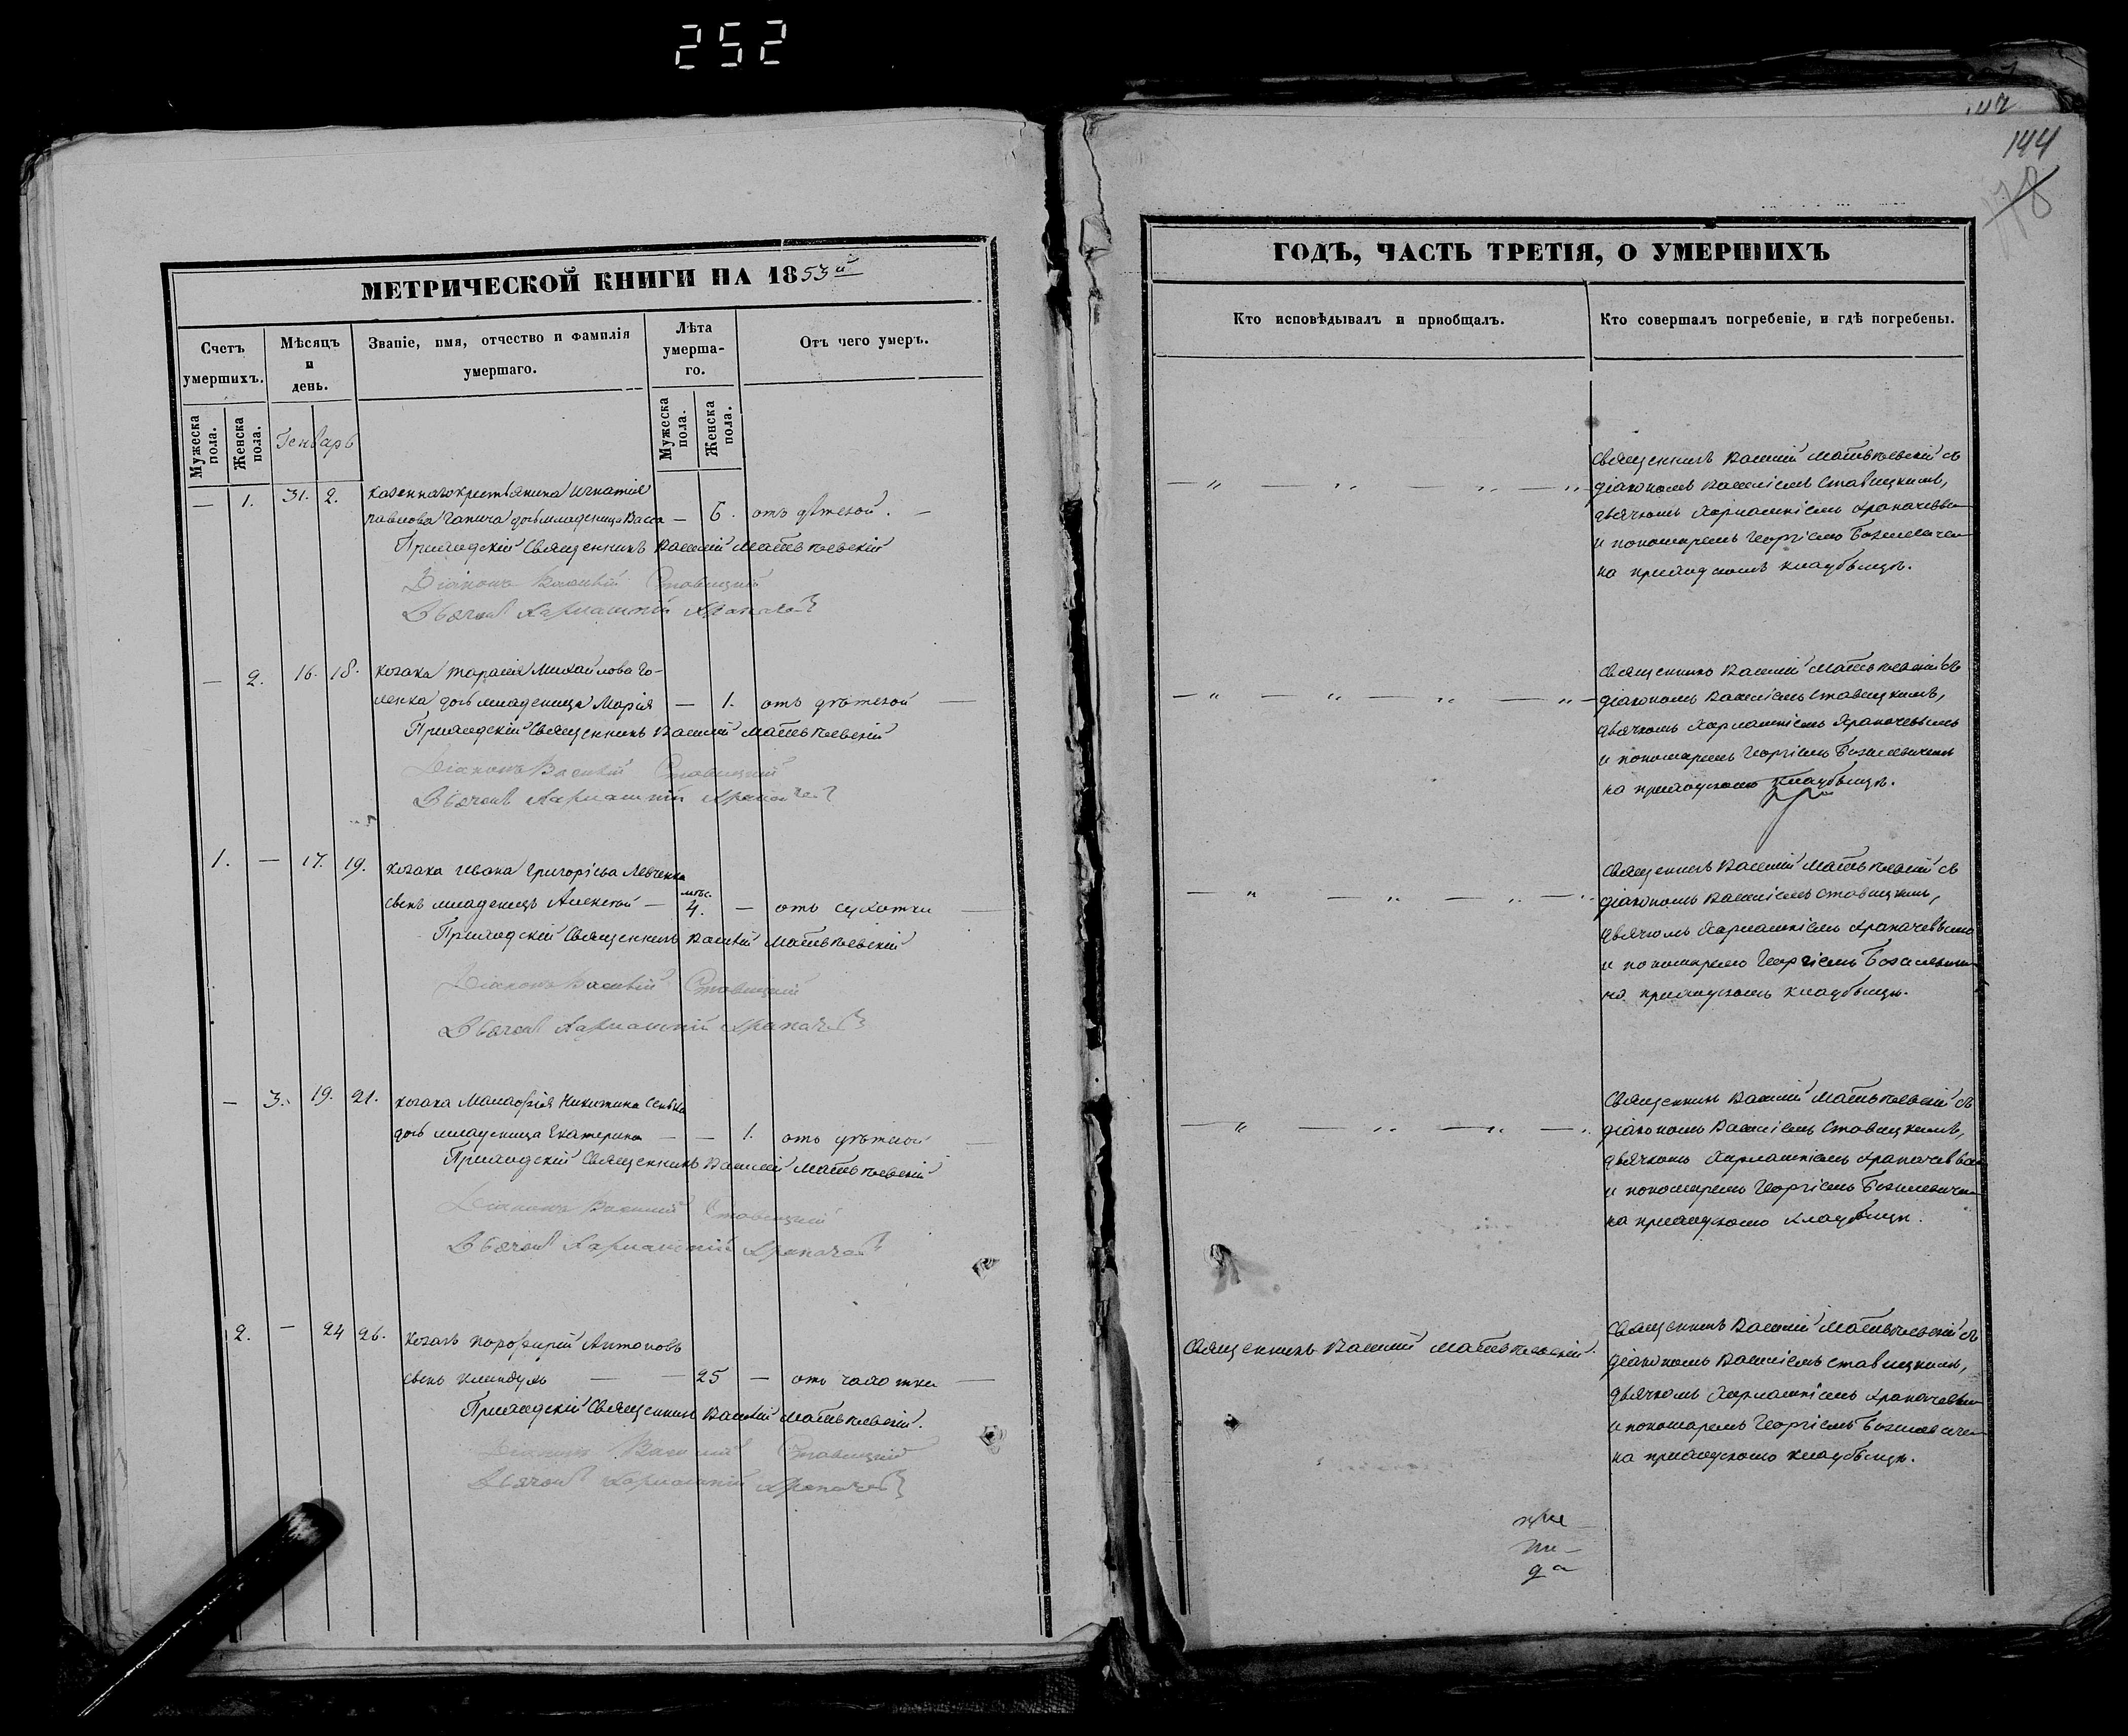 252
144
178
МЕТРИЧЕСКОЙ КНИГИ НА 1853й
Счетъ умершихъ.
Мѣсяцъ и день.
Званіе, имя, отчество и фамилія умершаго.
Лѣта умерша-го.
Отъ чего умеръ.
Мужеска пола.
Женска пола.
Генварь
Мужеска пола.
Женска пола.
— 1. 31. 2. Казеннаго крестьянина Игнатія
Павлова дочь младеница Васса — 6. отъ дѣтской. —
Приходскій Священникъ Василій Матвѣевскій
Діаконъ Василій Ставицкій
Дьячокъ Харлампій Храпачев
— 2. 16. 18. козака Тарасія Михайлова Го-
ленка дочь младеница Марія — 1. отъ дѣтской —
Приходскій Священникъ Василій Матвѣевскій
Діаконъ Василій Ставицкій
Дьячокъ Харлампій Храпачев
1. — 17. 19. козака Ивана Григорієва Левченка
сынъ младенецъ Алексѣй — мѣс. 4. — отъ сухотки —
Приходскій Священникъ Василій Матвѣевскій
Діаконъ Василій Ставицкій
Дьячокъ Харлампій Храпачев
— 3. 19. 21. козака Малафія Никитина
дочь младеница Екатерина — — 1. отъ дѣтской —
Приходскій Священникъ Василій Матвѣевскій
Діаконъ Василій Ставицкій
Дьячокъ Харлампій Храпачев
2. — 24 26. Козакъ Порфирій Антоновъ
сынъ — — 25 — отъ чахотки —
Приходскій Священникъ Василій Матвѣевскій.
Діаконъ Василій Ставицкій
Дьячокъ Харлампій Храпачев
ГОДЪ, ЧАСТЬ ТРЕТІЯ, О УМЕРШИХЪ
Кто исповѣдывалъ и пріобщалъ.
Кто совершалъ погребеніе, и гдѣ погребены.
Священникъ Василій Матвѣевскій съ
діакономъ Василіемъ Ставицкимъ,
дьячкомъ Харлампіемъ Храпачевым
и пономаремъ Георгіемъ
на приходскомъ кладбищѣ.
Священникъ Василій Матвѣевскій съ
діакономъ Василіемъ Ставицкимъ,
дьячкомъ Харлампіемъ Храпачевымъ
и пономаремъ Георгіемъ
на приходскомъ кладбищѣ.
Священникъ Василій Матвѣевскій съ
діакономъ Василіемъ Ставицкимъ,
дьячкомъ Харлампіемъ Храпачевымъ
и пономаремъ Георгіемъ
на приходскомъ кладбищѣ.
Священникъ Василій Матвѣевскій съ
діакономъ Василіемъ Ставицкимъ,
дьячкомъ Харлампіемъ Храпачевым
и пономаремъ Георгіемъ
на приходскомъ кладбищѣ.
Священникъ Василій Матвѣевскій.
Священникъ Василій Матвѣевскій съ
діакономъ Василіемъ Ставицкимъ,
дьячкомъ Харлампіемъ Храпачевым
и пономаремъ Георгіемъ
на приходскомъ кладбищѣ.